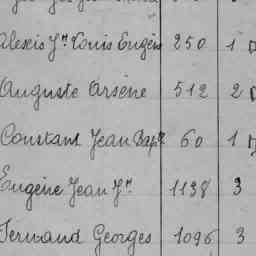 Alexis Jn Louis Eugène 250 1
Auguste Arsène 512 2
Constant Jean Bapte 60 1
Eugène Jean Jn 1138 3
Fernand Georges 1096 3